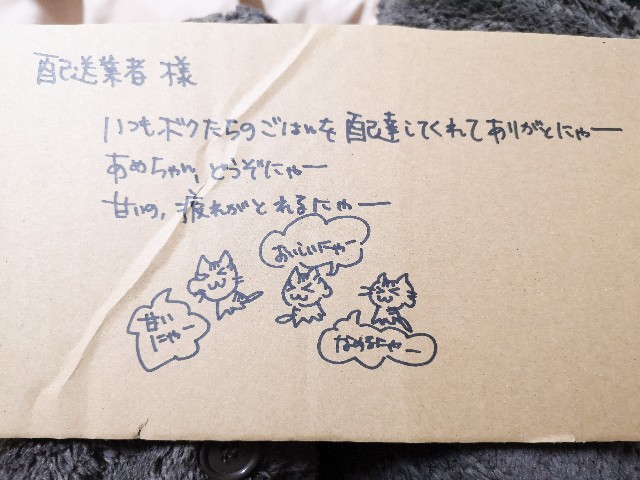 配送業者 様
いつもボクたちのごはんを配達してくれてありがとにゃー
あめちゃん、どうぞにゃー
甘いの、疲れがとれるにゃー
おいしいにゃー
甘い
にゃー
なめるにゃー